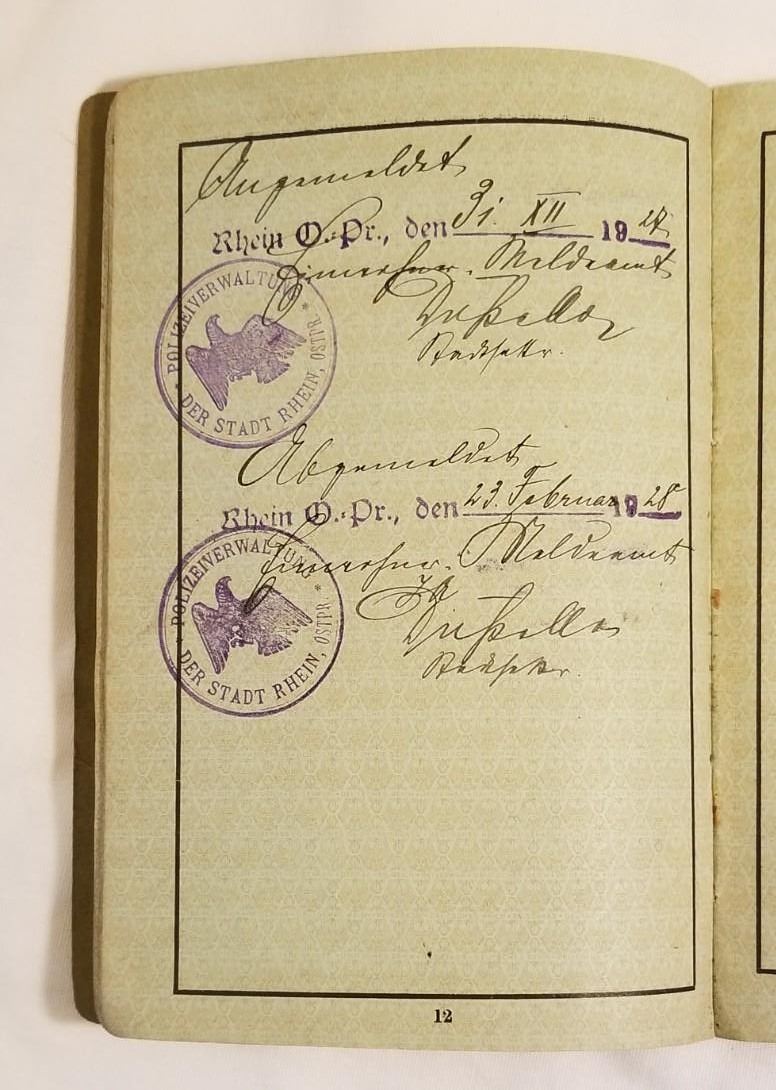 Angemeldet
Rhein O.-Pr., den 31. XII 1927
Einwohner-Meldeamt
Stadtsekr.
POLIZEIVERWALTUNG
DER STADT RHEIN, OSTPR.
Abgemeldet
Rhein O.-Pr., den 23. Februar 1928
Einwohner-Meldeamt
Stadtsekr.
POLIZEIVERWALTUNG
DER STADT RHEIN, OSTPR.
12